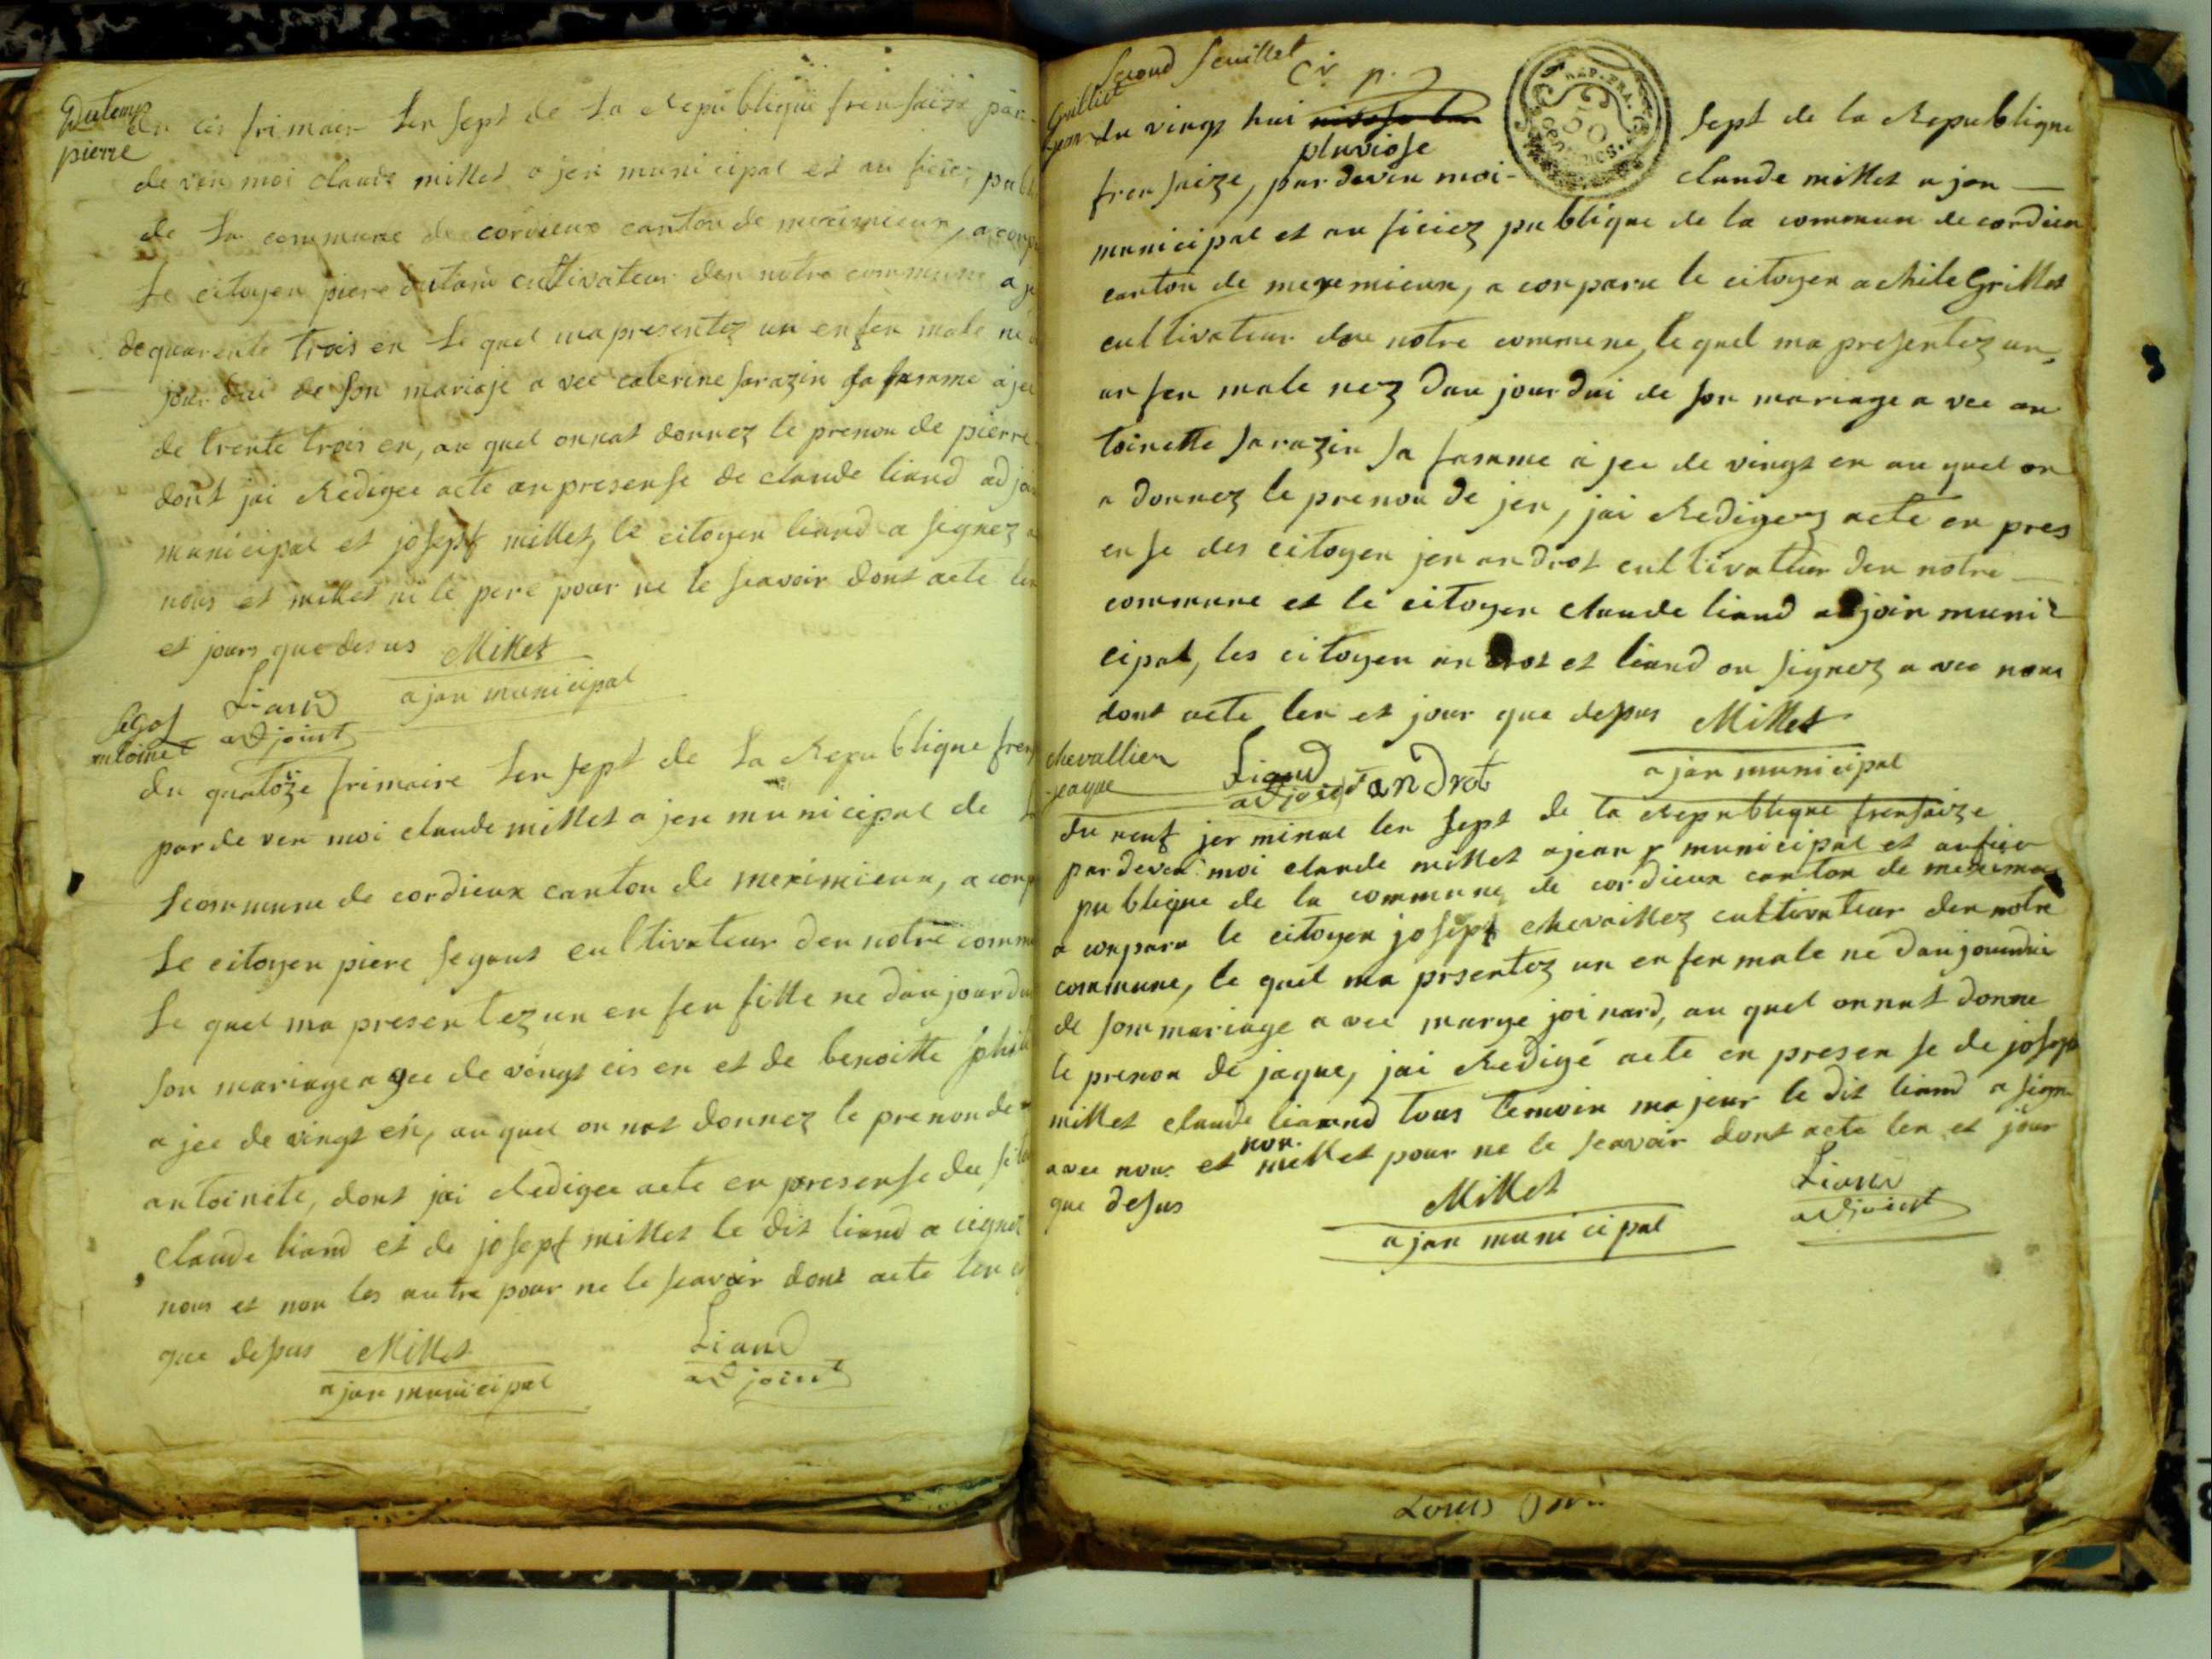 Dutemp
pierre
du cis frimair len sept de la Republique frensaise par
de ven moi claude millet ajen municipal et au ficiez publi
de la commune de cordieux canton de meximieux, a conp
le citoyen piere dutam cultivateur den notre commune aje
de quarente trois en le quel ma presentez un enfen male né
jour dui de son mariaje a vec caterine sarazin sa famme ajee
de trente trois en, au quel onnat donnez le prenon de pierre
dont jai Redigee acte anpresense de claude liand adjoi
municipal et josept millet, le citoyen liand a signez a
nous et millet ni le pere pour ne le scavoir dont acte len
et jours que desus Millet
ajan municipal
Liand
adjoint
Segos
antoinet
du quatoze frimaire len sept de la Republique fren
par de ven moi claude millet a jen municipal de la
commune de cordieux canton de meximieux, a conp
le citoyen piere segaut cultivateur den notre comm
le quel ma presentez un en fen fille ne dau jourdu
son mariage agee de vingt cis en et de benoitte
a jee de vingt en, au quel on nat donnez le prenon de
antoinete, dont jai Redigee acte en presense du sito
claude liand et de josept millet le dit liand a cignez
nous et non les autre pour ne le scavoir dont acte len et
que desus Millet
ajan municipal
Liand
adjoint
Second feuillet
Grilliet
jean
du vingt hui nivose len sept de la Republique
pluviose
frensaize, pardeven moi claude millet a jon
municipal et au ficiez publique de la commun de cordieu
canton de meximieux, a conparu le citoyen achile Grillet
cultivateur den notre commune, le quel ma presentez un
an fen male nez dau jour dui de son mariage a vec an
toinette sarazin sa famme a jee de vingt en au quel on
a donnez le prenon de jen, jai Redigez acte en pres
ense des citoyen jen androt cultivateur den notre
commune et le citoyen claude liand adjoin muni
cipal, les citoyen androt et liand on signez a vec nous
dont acte len et jour que desus Millet
ajan municipal
Liand
adjoint
androt
chevallier
jaque
du neuf jerminal len sept de la Republique frensaize
pardeven moi claude millet ajean municipal et aufice
publique de la commune de cordieux canton de meximie
a conparu le citoyen josept chevaillez cultivateur den notre
commune, le quel ma prsentez un en fen male né daujourdui
de son mariage a vec marye joinard, au quel onnat donne
le prenon de jaque, jai Redigé acte en presense de josept
millet claude liaand tous temoin majeur le dit liand a signe
avec nous et non millet pour ne le scavoir dont acte len et jour
que desus
Millet
ajan municipal
Liand
adjoint
Louis